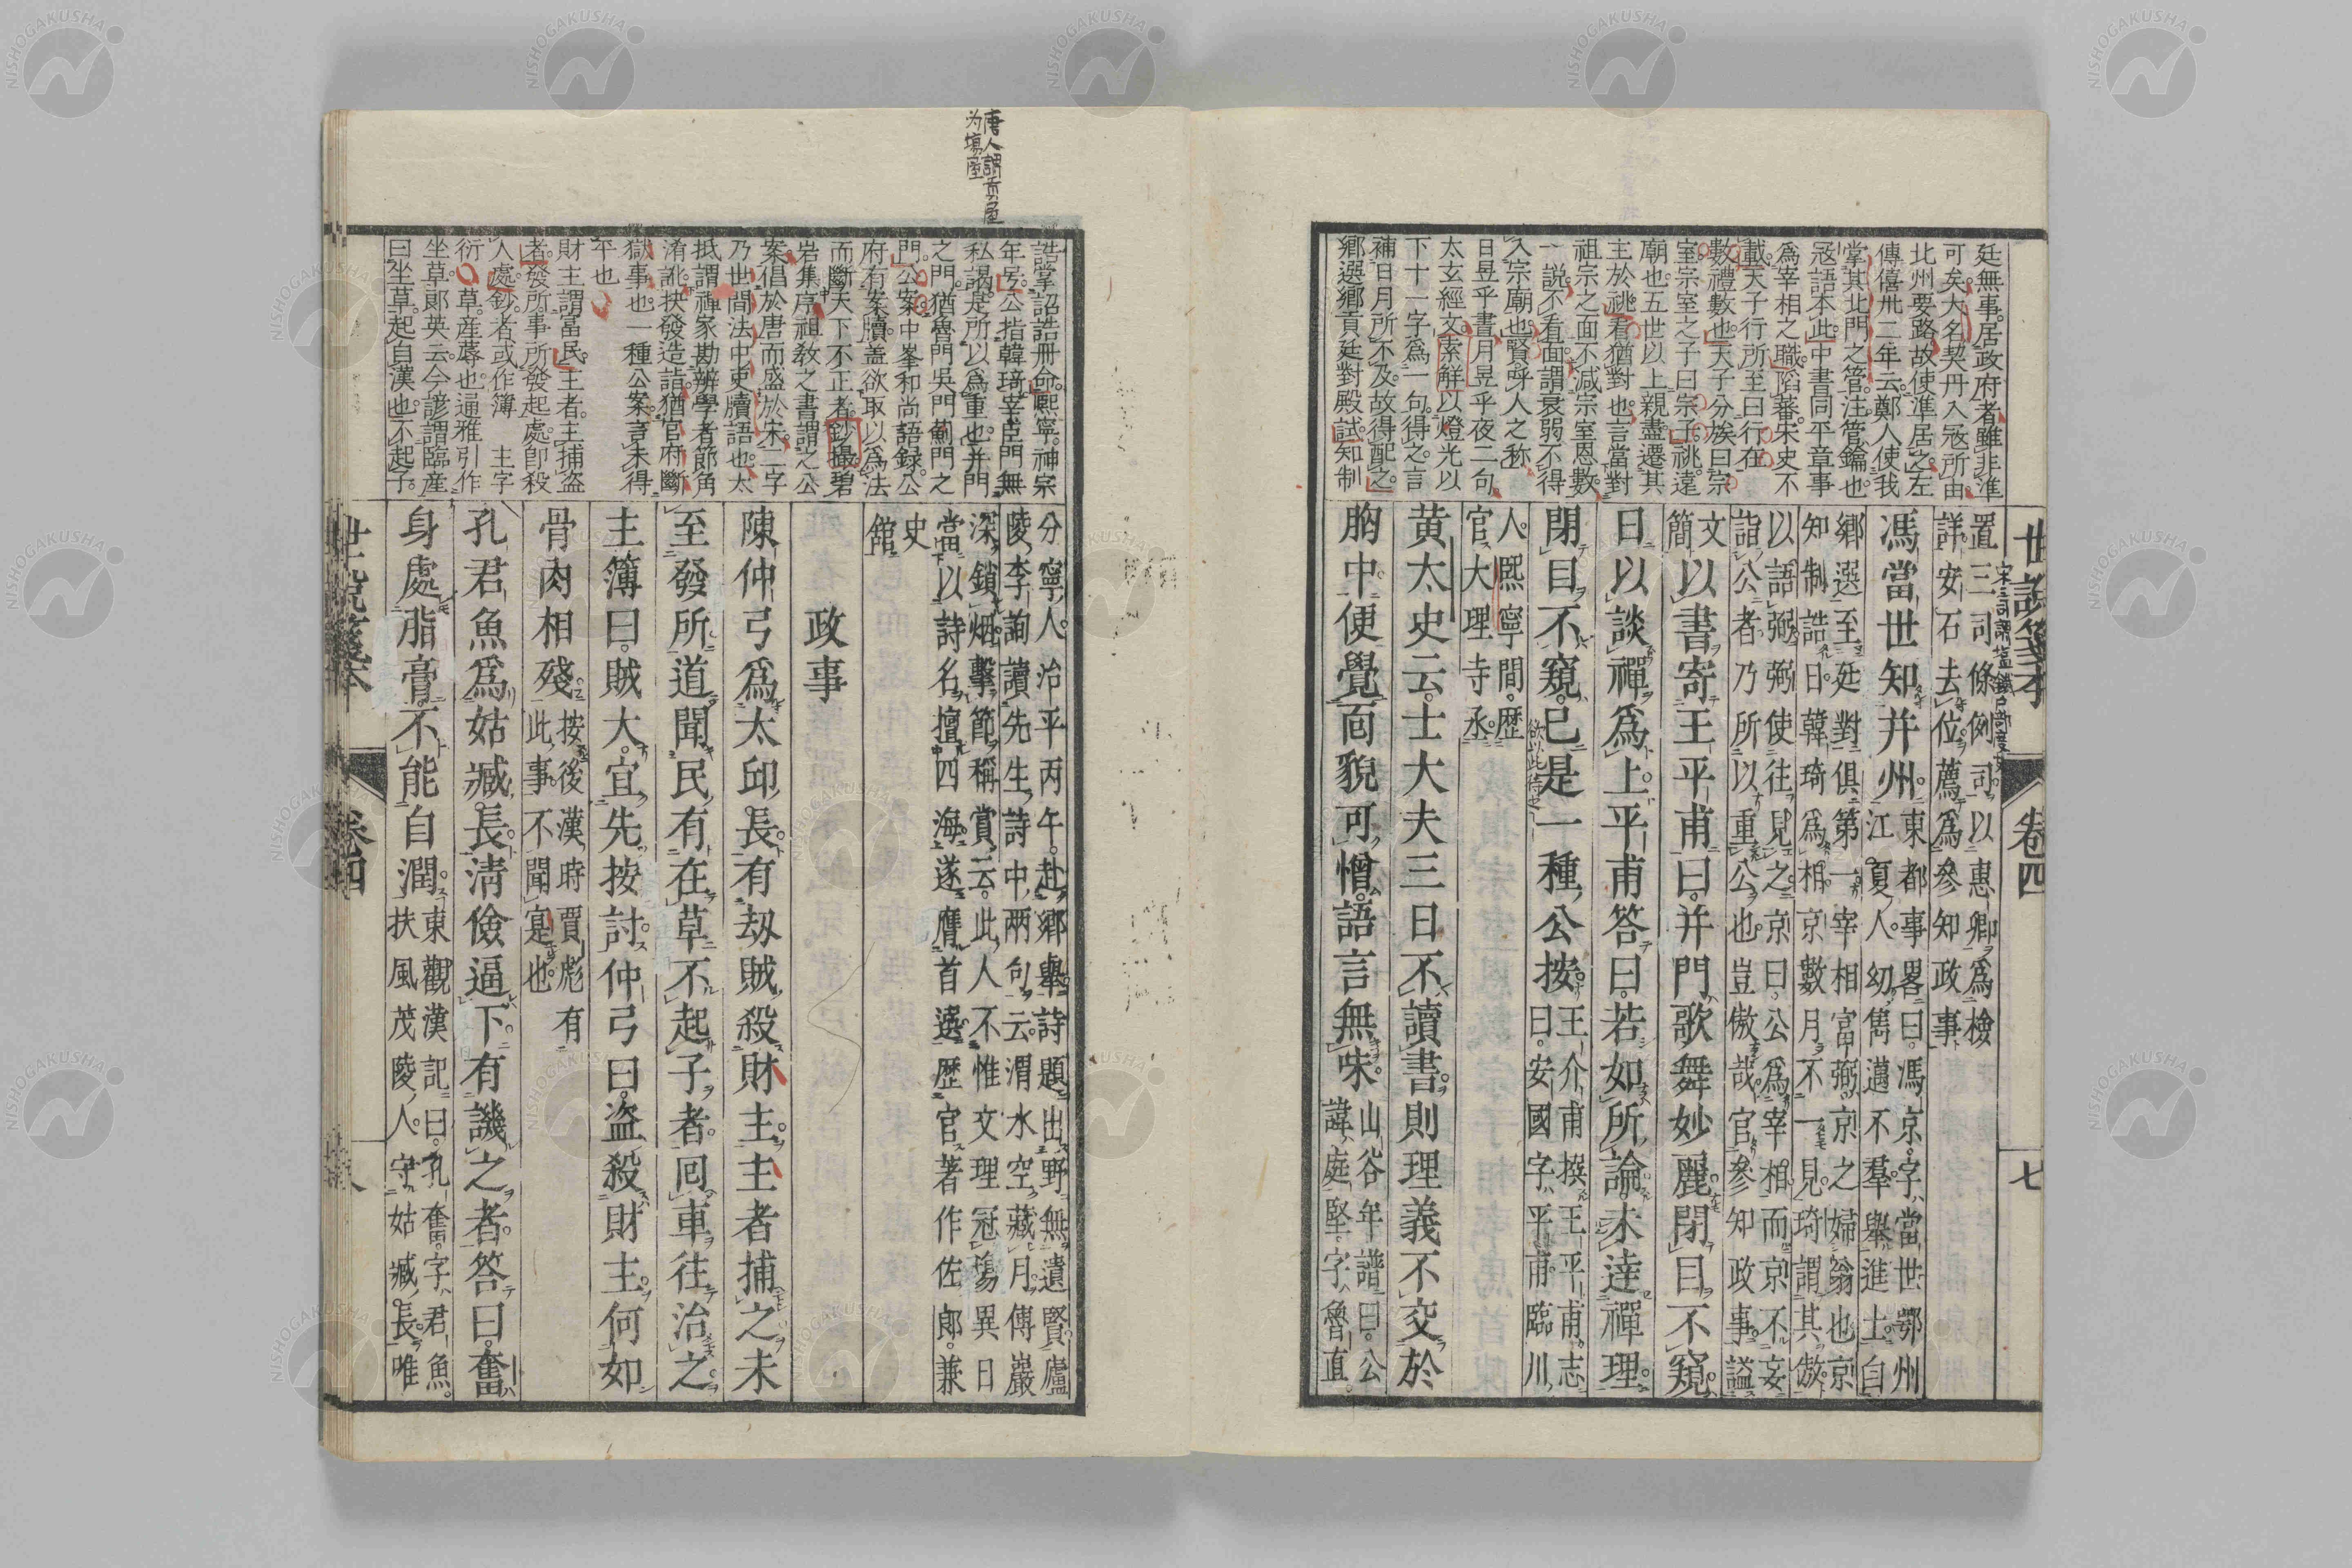 廷無事居政府者雖非準
可矣大名契丹入寇所由
北州要路故使準居之左
傳僖卅二年云鄭人使我
掌其北門之管注管鑰也
寇語本此中書同平章事
爲宰相之職陷蕃宋史不
載天子行所至曰行在
數禮數也天子分族曰宗
室宗室之子曰宗子祧遠
廟也五世以上親盡遷其
主於祧看猶對也言當對
祖宗之面不減宗室恩數
一說不看面謂衰弱不得
入宗廟也賢呼人之称
日昱乎晝月昱乎夜二句
太玄經文索解以燈光以
下十一字爲一句得之言
補日月所不及故得配之
鄉選鄉貢廷對殿試知制
世說箋本
卷四
七
置三司條例司以惠卿爲檢
宋三司謂塩鐵戸部度支
詳安石去位薦爲參知政事
馮當世知并州
東都事畧曰馮京字當世鄂州
江夏人幼雋邁不羣舉進士自
鄉選至廷對俱第一宰相富弼京之婦翁也京
知制誥日韓琦爲相京數月不一見琦謂其傲
以語弼弼使往見之京曰公爲宰相而京不妄
詣公者乃所以重公也豈傲哉官參知政事謚
文
簡
以書寄王平甫曰并門歌舞妙麗閉目不窺
日以談禪爲上平甫答曰若如所論未達禪理
閉目不窺已是一種公按
欲以此待之
王介甫撰王平甫志
曰安國字平甫臨川
人熙寧間歷
官大理寺丞
黃太史云士大夫三日不讀書則理義不交於
胸中便覺面貌可憎語言無味
山谷年譜曰公
諱庭堅字魯直
唐人謂貢屋
为場屋
誥掌詔誥冊命熙寧神宗
年号公指韓琦宰臣門無
私謁是所以爲重也并門
之門猶魯門吳門薊門之
門公案中峯和尚語録公
府有案牘盖欲取以爲法
而斷天下不正者鈔撮碧
岩集序祖敎之書謂之公
案倡於唐而盛於宋二字
乃世間法中吏牘語也太
抵謂禪家勘辨學者節角
淆訛抉發造詣猶官府斷
獄事也一種公案言未得
平也
財主謂富民主者主捕盜
者發所事所發起處卽殺
人處鈔者或作簿 主字
衍 草產蓐也通雅引作
坐草郞英云今諺謂臨産
曰坐草起自漢也不起子
分寧人治平丙午赴鄉舉詩題出野無遺賢廬
陵李詢讀先生詩中兩句云渭水空藏月傳巖
深鎖烟擊節稱賞云此人不惟文理冠場異日
當以詩名擅四海遂膺首選歷官著作佐郞兼
史
館
政事
陳仲弓爲太邱長有劫賊殺財主主者捕之未
至發所道聞民有在草不起子者回車往治之
主簿曰賊大宜先按討仲弓曰盜殺財主何如
骨肉相殘
按後漢時賈彪有
此事不聞寔也
孔君魚爲姑臧長清儉逼下有譏之者答曰奮
身處脂膏不能自潤
東觀漢記曰孔奮字君魚
扶風茂陵人守姑臧長唯
世說箋本
卷四
八